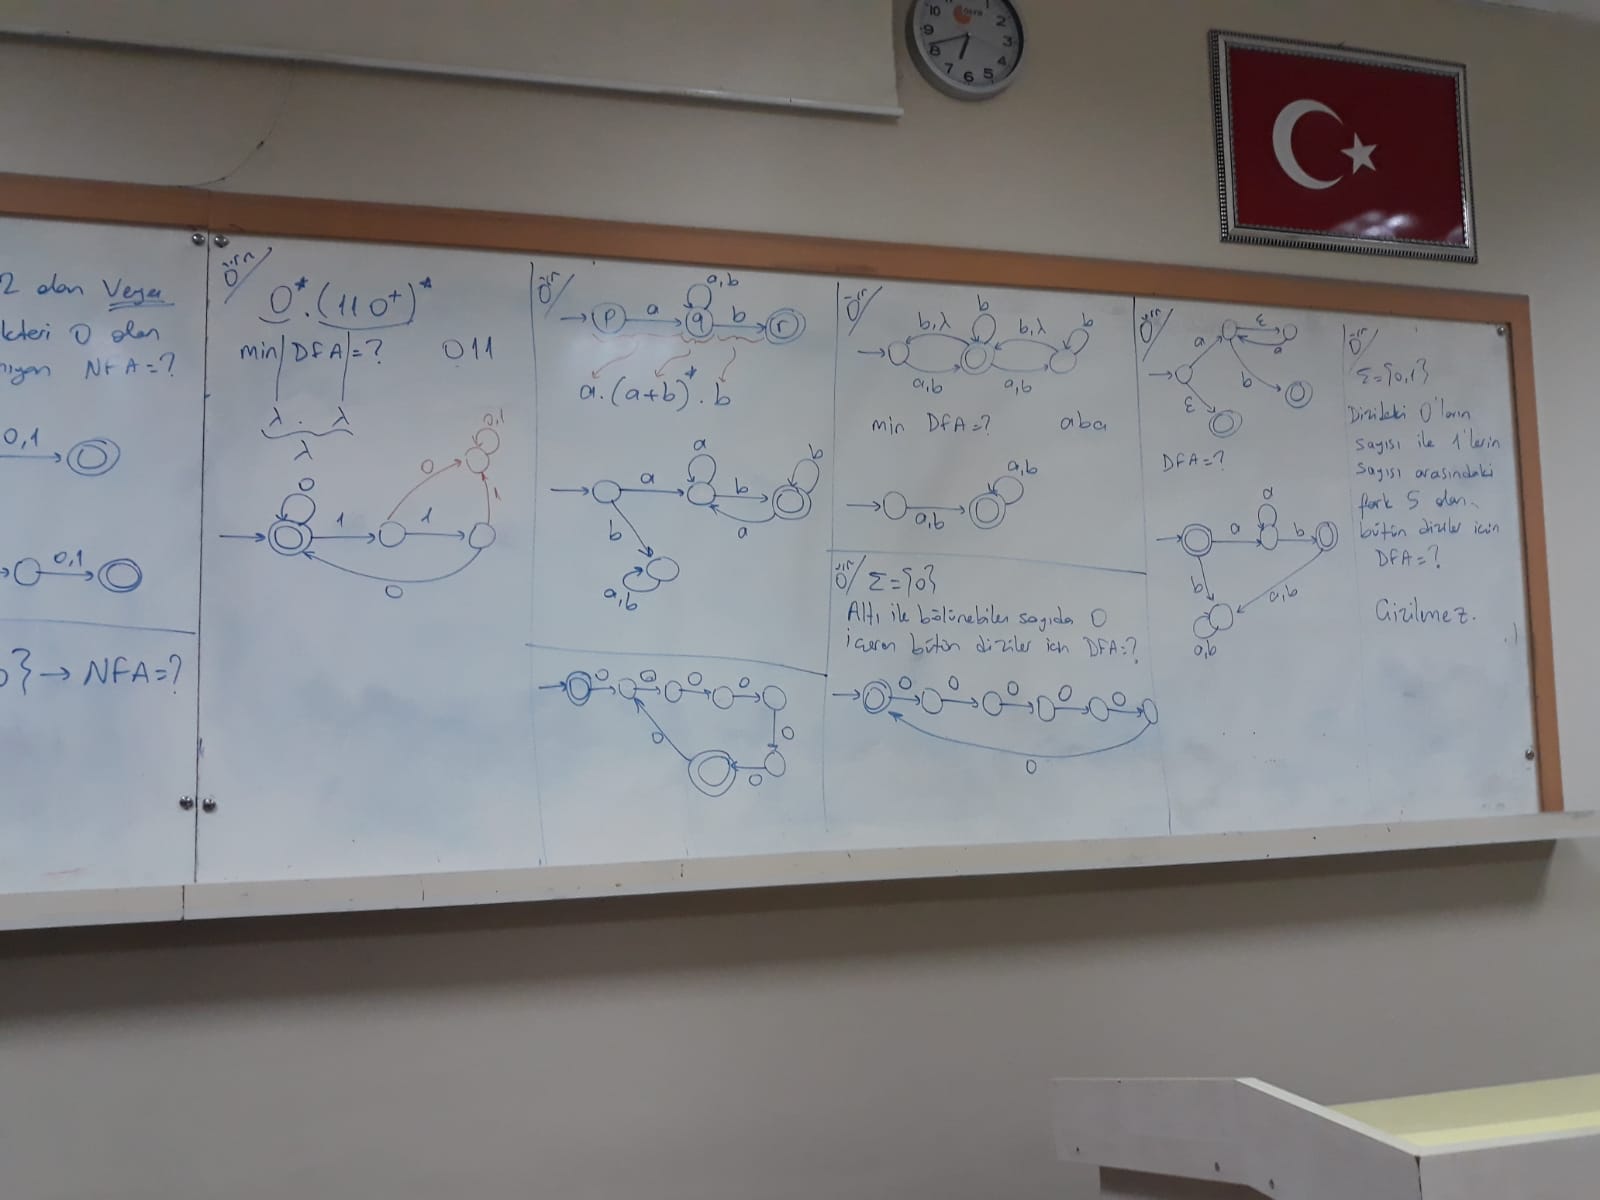 2 olan Veya
kteri 0 olan
mıyan NFA=?
0,1
0,1
} → NFA=?
Örn/
0*.(110+)*
min DFA=? 011
λ . λ
λ
0
1
1
0
0,1
1
0
Örn/
p
a
a,b
q
b
r
a.(a+b)*.b
a
a
b
b
a
b
a,b
0 0 0 0
0
0
0
Örn/
b,λ
b
b,λ
b
a,b
a,b
min DFA=? aba
a,b
a,b
Örn/ Σ={0}
Altı ile bölünebilen sayıda 0
içeren bütün diziler için DFA=?
0 0 0 0 0
0
Örn/
a
ε
a
b
ε
DFA=?
a
a
b
b
a,b
a,b
Örn/
Σ={0,1}
Dizideki 0'ların
sayısı ile 1'lerin
sayısı arasındaki
fark 5 olan
bütün diziler için
DFA=?
Çizilmez.
10
1
2
9
3
8
4
7
6
5